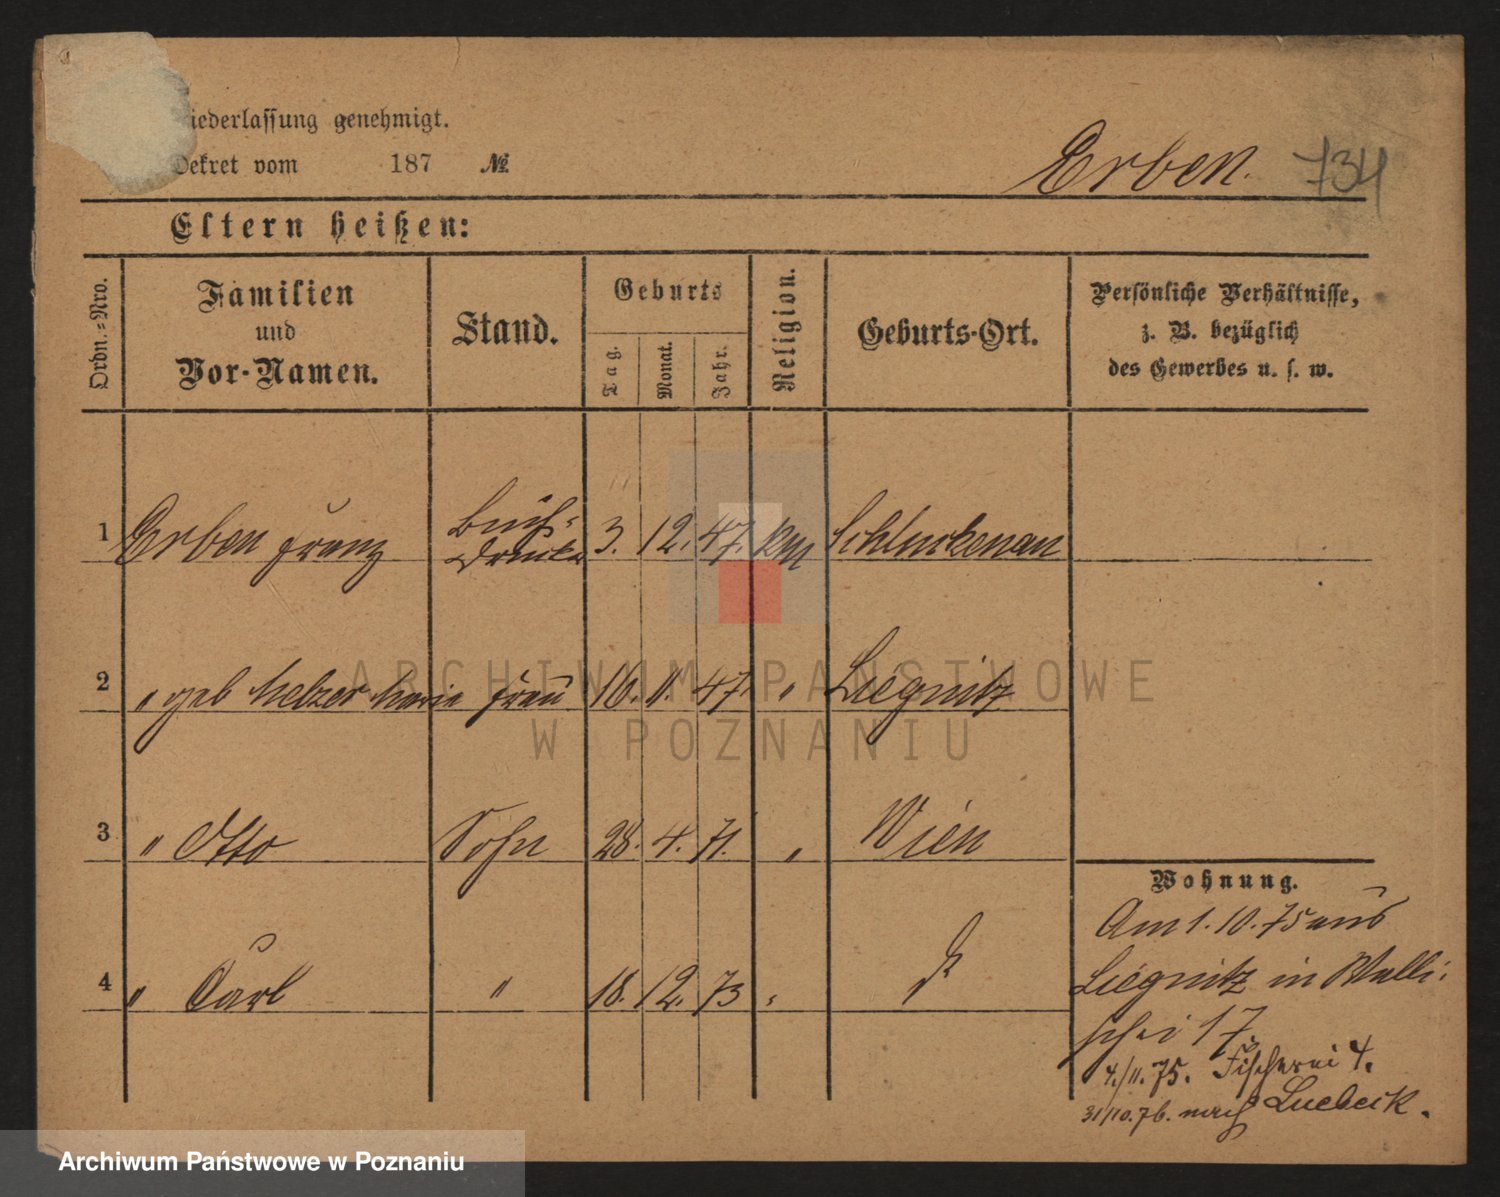 iederlassung genehmigt.
Dekret vom 187 №
Erben. 734
Eltern heißen:
Ordn.-Nro.
Familien und Vor-Namen.
Stand.
Geburts
Tag. Monat. Jahr.
Religion.
Geburts-Ort.
Persönliche Verhältnisse,
z. B. bezüglich
des Gewerbes u. s. w.
1 Erben Franz Buch- 3. 12. 47. Schluckenau
drucker
2 " geb Melzer Marie Frau 16. 11. 47. " Liegnitz
3 " Otto Sohn 28. 4. 71. " Wien
4 " Carl " 18. 12. 73 "
Wohnung.
Am 1. 10. 75 aus
Liegnitz in Walli-
schei 17.
4./11. 75. Fischerei 4.
31/10. 76. nach Luebeck.
ARCHIWUM PAŃSTWOWE
W POZNANIU
Archiwum Państwowe w Poznaniu